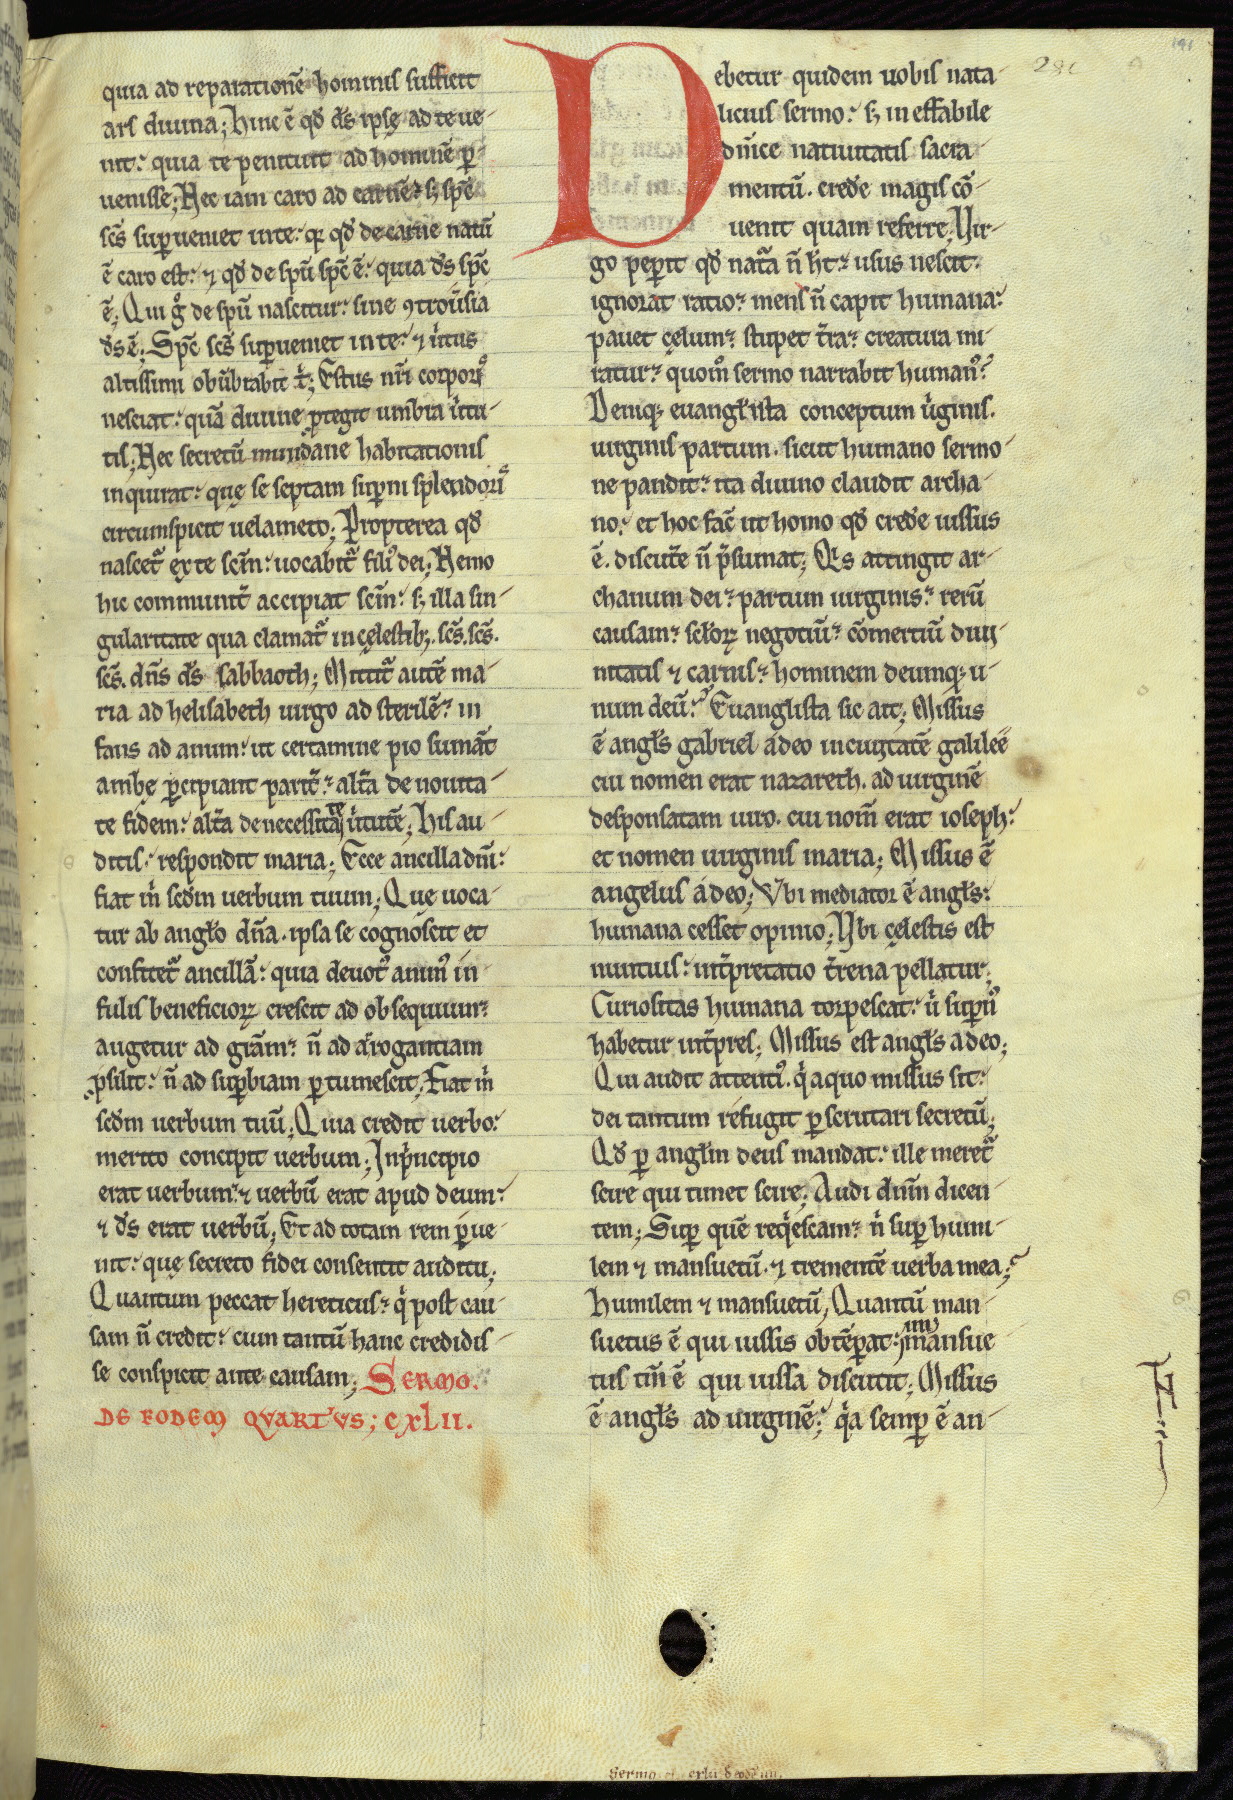 quia ad reparationē hominis sufficit
ars diuina; Hinc ē qđ d̄s ipsę ad te ue-
nit: quia te penituit ad hominē ꝑ-
uenisse; Nec iam caro ad carnē: sꝫ sp̄c
sc̄s suꝑueniet in te: qꝛ qđ de carne natū
ē caro est: ⁊ qđ de sp̄u sp̄c ē: quia d̄s sp̄c
ē; Qui gͦ de sp̄u nascitur: sine ꝯtroūsia
d̄s ē; Sp̄c sc̄s suꝑueniet in te: ⁊ u̍tus
altissimi obūbrabit t̍; Estus nr̄i corporꝰ
nesciat: quā diuine ꝓtegit umbra u̍tu-
tis; Nec secretū mundane habitationis
inquirat: quę se septam suꝑni splendorꝰ
circumspicit uelameto; Propterea qđ
nascet̄ ex te sc̄m: uocabit̄ filiꝰ dei; Nemo
hic communit̄ accipiat sc̄m: sꝫ illa sin-
gularitate qua clamat̄ in cęlestibꝫ. sc̄s. sc̄s.
sc̄s. dn̄s d̄s sabbaoth; Mittit̄ autē ma-
ria ad helisabeth uirgo ad sterilē: in
fans ad anum: ut certamine pio sumāt
ambę ꝑcipiant parit̄: alt̄a de nouita-
te fidem: alt̄a de necessitate u̍tutē; His au-
ditis: respondit maria; Ecce ancilla dn̄i:
fiat m̍ scđm uerbum tuum; Que uoca-
tur ab anglo dn̄a. ipsa se cognoscit et
confitet̄ ancillā: quia deuotꝰ animꝰ in-
fusis beneficioꝝ crescit ad obsequium:
augetur ad grām: n̄ ad arrogantiam
ꝓsilit: n̄ ad suꝑbiam ꝑtumescit; Fiat m̍
scđm uerbum tuū; Quia credit uerbo:
merito concipit uerbum; In pͥncipio
erat uerbum: ⁊ uerbū erat apud deum:
⁊ d̄s erat uerbū; Et ad totam rem ꝑue-
nit: quę secreto fidei consentit auditu;
Quantum peccat hereticus: qͥ post cau-
sam n̄ credit: cum tantū hanc credidis-
se conspicit ante causam; SERMO.
DE EODEM QVARTVS; CXLII.
Debetur quidem uobis nata-
licius sermo: sꝫ in effabile
dn̄ice natiuitatis sacra-
mentū. credē magis cō-
uenit quam referre; Vir-
go peꝑit qđ nat̄a n̄ h̄t: usus nescit:
ignorat ratio: mens n̄ capit humana:
pauet cęlum: stupet t̄ra: creatura mi-
ratur: quom̊ sermo narrabit humanꝰ?
Deniqꝫ euanglista conceptum u̍ginis.
uirginis partum. sicut humano sermo-
ne pandit: ita diuino claudit archa-
no: et hoc fac̄ ut homo qđ credē iussus
ē. discut̄e n̄ p̄sumat; Qͥs attingit ar-
chanum dei: partum uirginis: rerū
causam: scl̄oꝝ negotiū: cōmertiū diui-
nitatis ⁊ carnis: hominem deumqꝫ u-
num deū? Euanglista sic ait; Missus
ē angls gabriel ádeo inciuitatē galilee
cui nomen erat nazareth. ad uirginē
desponsatam uiro. cui nom̄ erat ioseph:
et nomen uirginis maria; Missus ē
angelus ádeo; Vbi mediator ē angls:
humana cesset opinio; Vbi cęlestis est
nuntius: int̄pretatio t̄rena pellatur;
Curiositas humana torpescat: u̍ suꝑnꝰ
habetur int̄pres; Missus est angls adeo;
Qui audit attentꝰ. qͥ aquo missus sit:
dei tantum refugit ꝑscrutari secretū;
Qđ ꝑ anglm deus mandat: ille meret̄
scire qui timet scire; Audi dn̄m dicen-
tem; Suꝑ quē reqͥescam: nͥ suꝑ humi-
lem ⁊ mansuetū. ⁊ trementē uerba mea;
Humilem ⁊ mansuetū; Quantū man-
suetus ē qui iussis obtēꝑat: immansue
tus tm̄ ē qui iussa discutit; Missus
ē angls ad uirginē; qͥa semꝑ ē an-